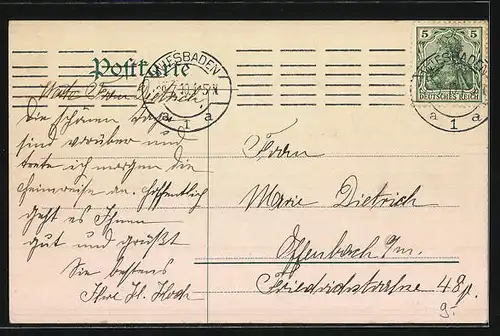 Postkarte
WIESBADEN
a 1 a
5 5
DEUTSCHES REICH
WIESBADEN
a 1 a
Frau Dietrich,
Die schönen Tage
sind vorüber und
trete ich morgen die
Heimreise an. Hoffentlich
geht es Ihnen
gut und grüßt
Sie bestens
Ihre H. Koch
Frau
Marie Dietrich
Offenbach a/m.
Friedrichstrasse 48p.